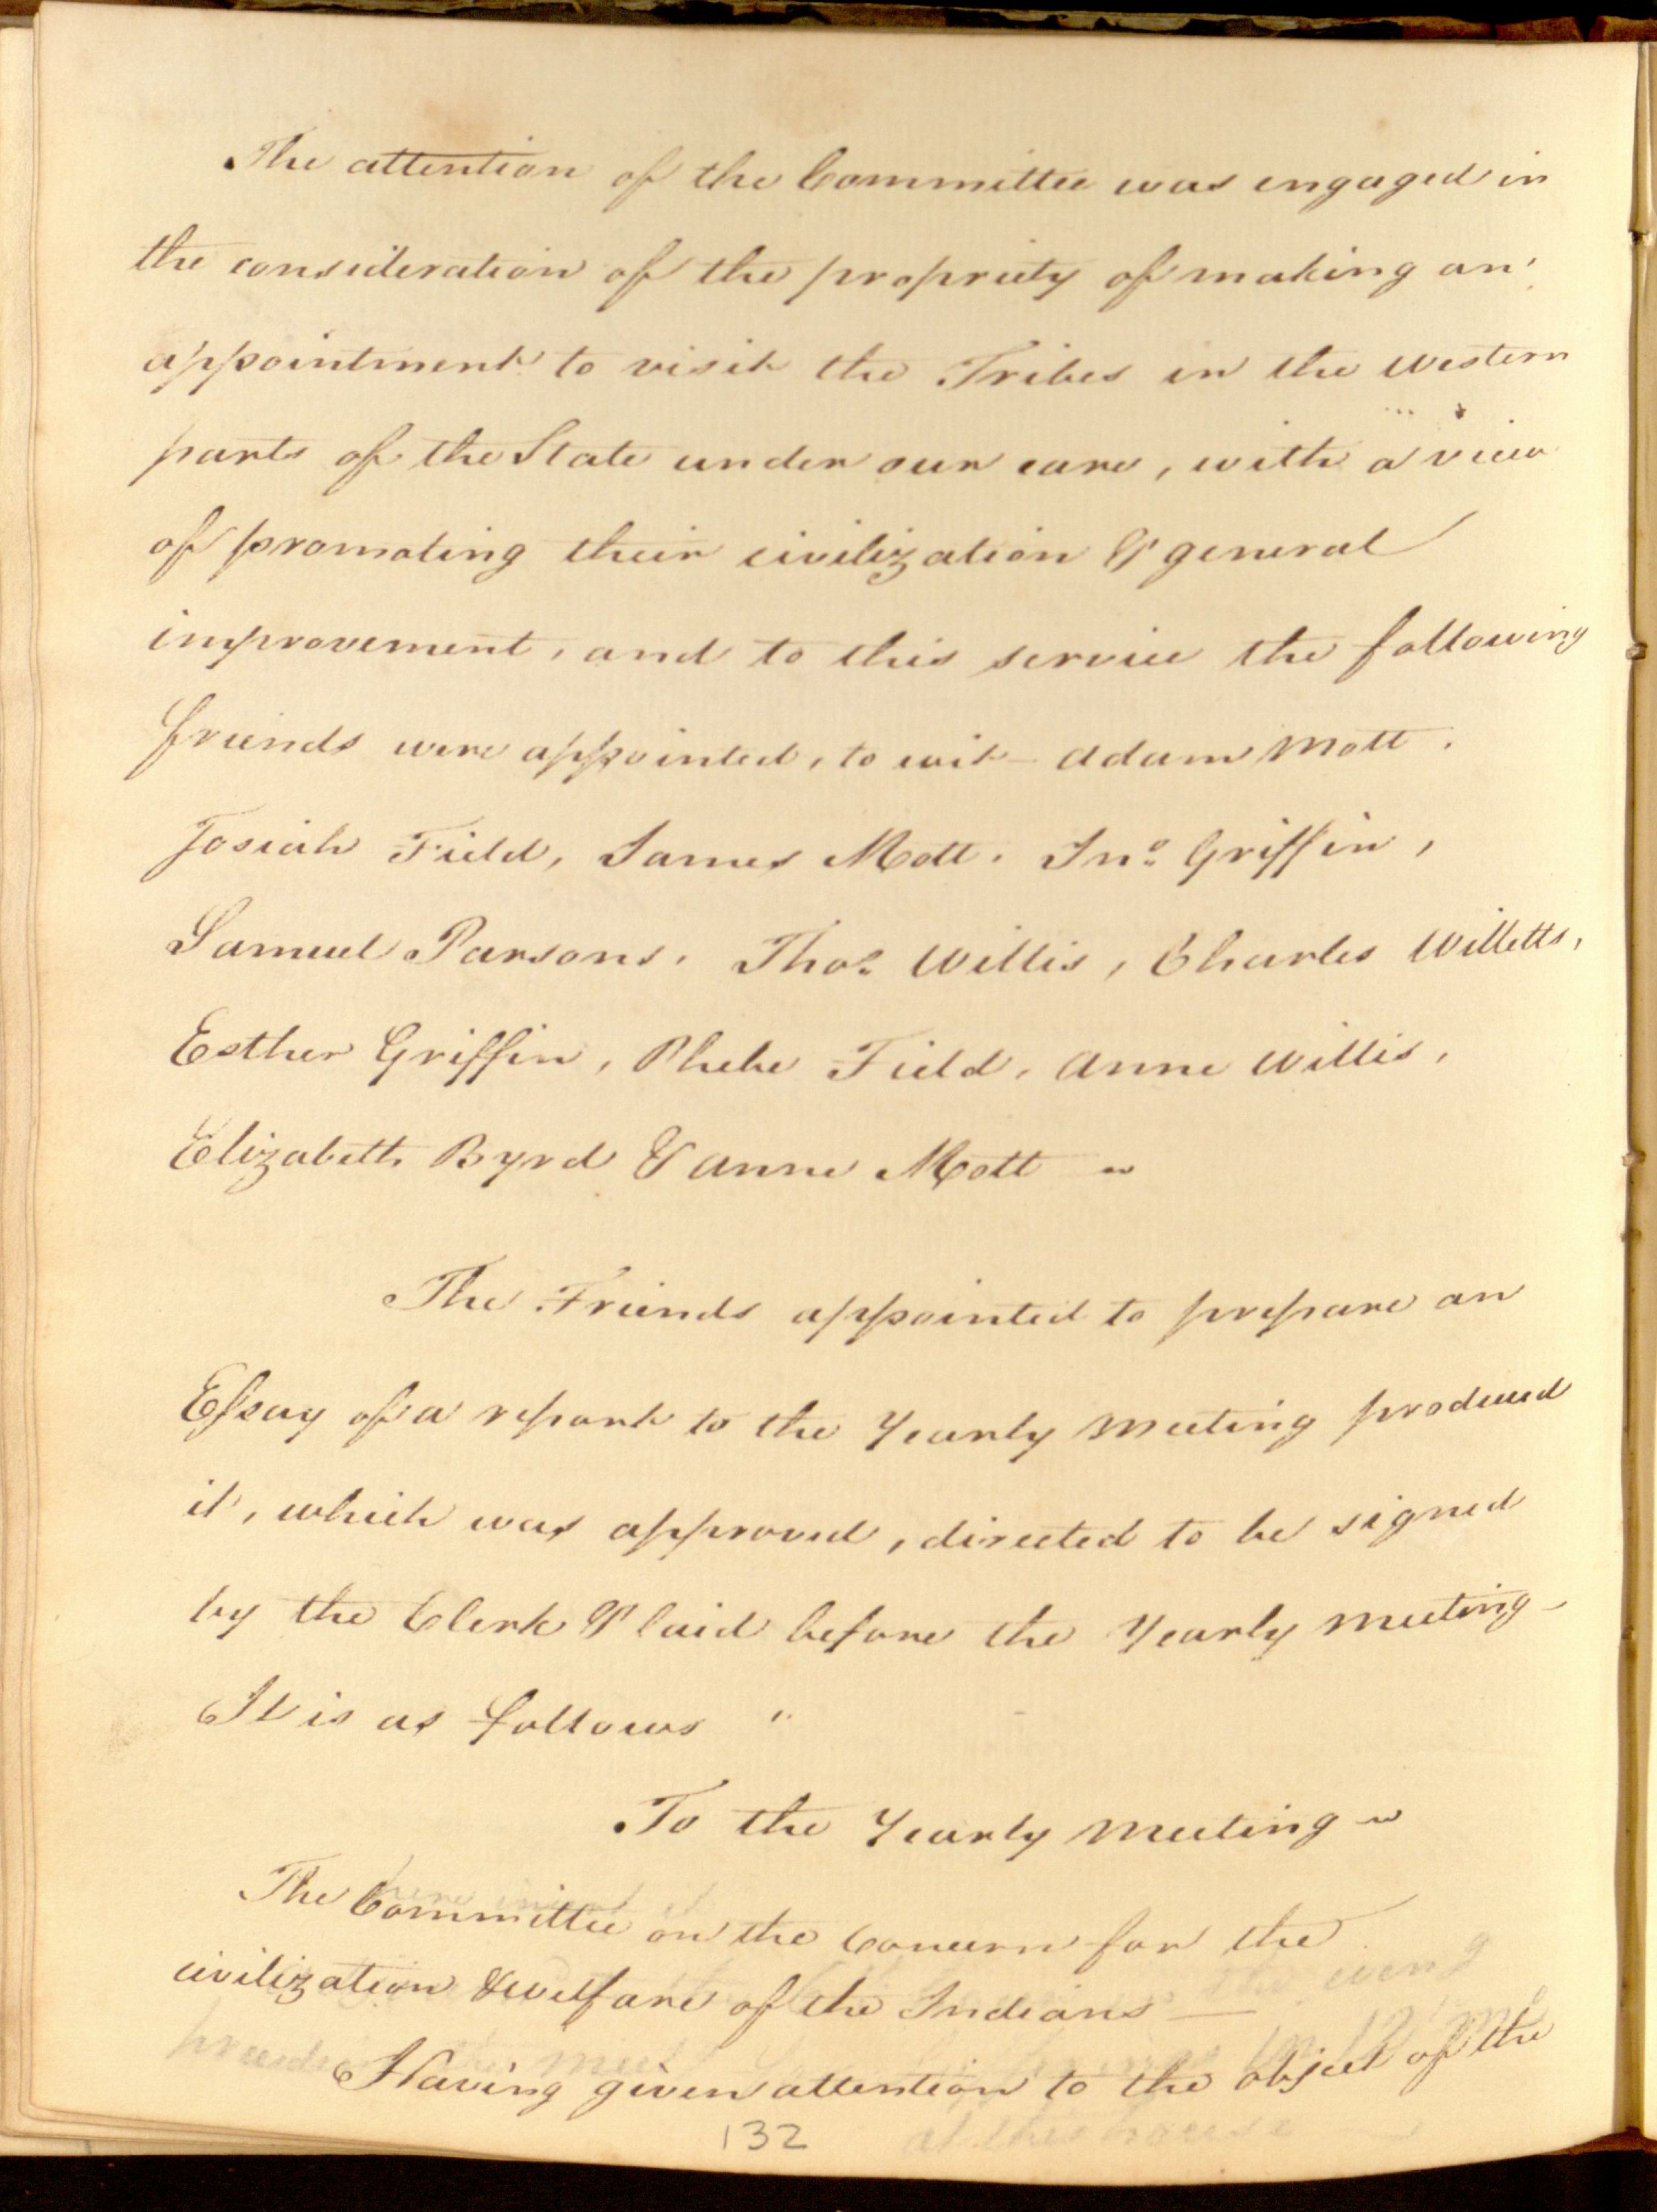 The attention of the Committee was engaged in
the consideration of the propriety of making an
appointment to visit the Tribes in the western
parts of the State under our care, with a view
of promoting their civilization & general
improvement, and to this service the following
friends were appointed, to wit - Adam Mott.
Josiah Field, James Mott. Jno. Griffin,
Samuel Parsons. Thos. Willis, Charles Willetts,
Esther Griffin, Phebe Field, Anne Willis,
Elizabeth Byrd & Anne Mott ~
The Friends appointed to prepare an
Essay of a report to the Yearly Meeting produced
it, which was approved, directed to be signed
by the Clerk & laid before the Yearly Meeting -
It is as follows "
To the Yearly Meeting ~
The Committee on the Concern for the
civilization & welfare of the Indians —
Having given attention to the object of the
132
at this house